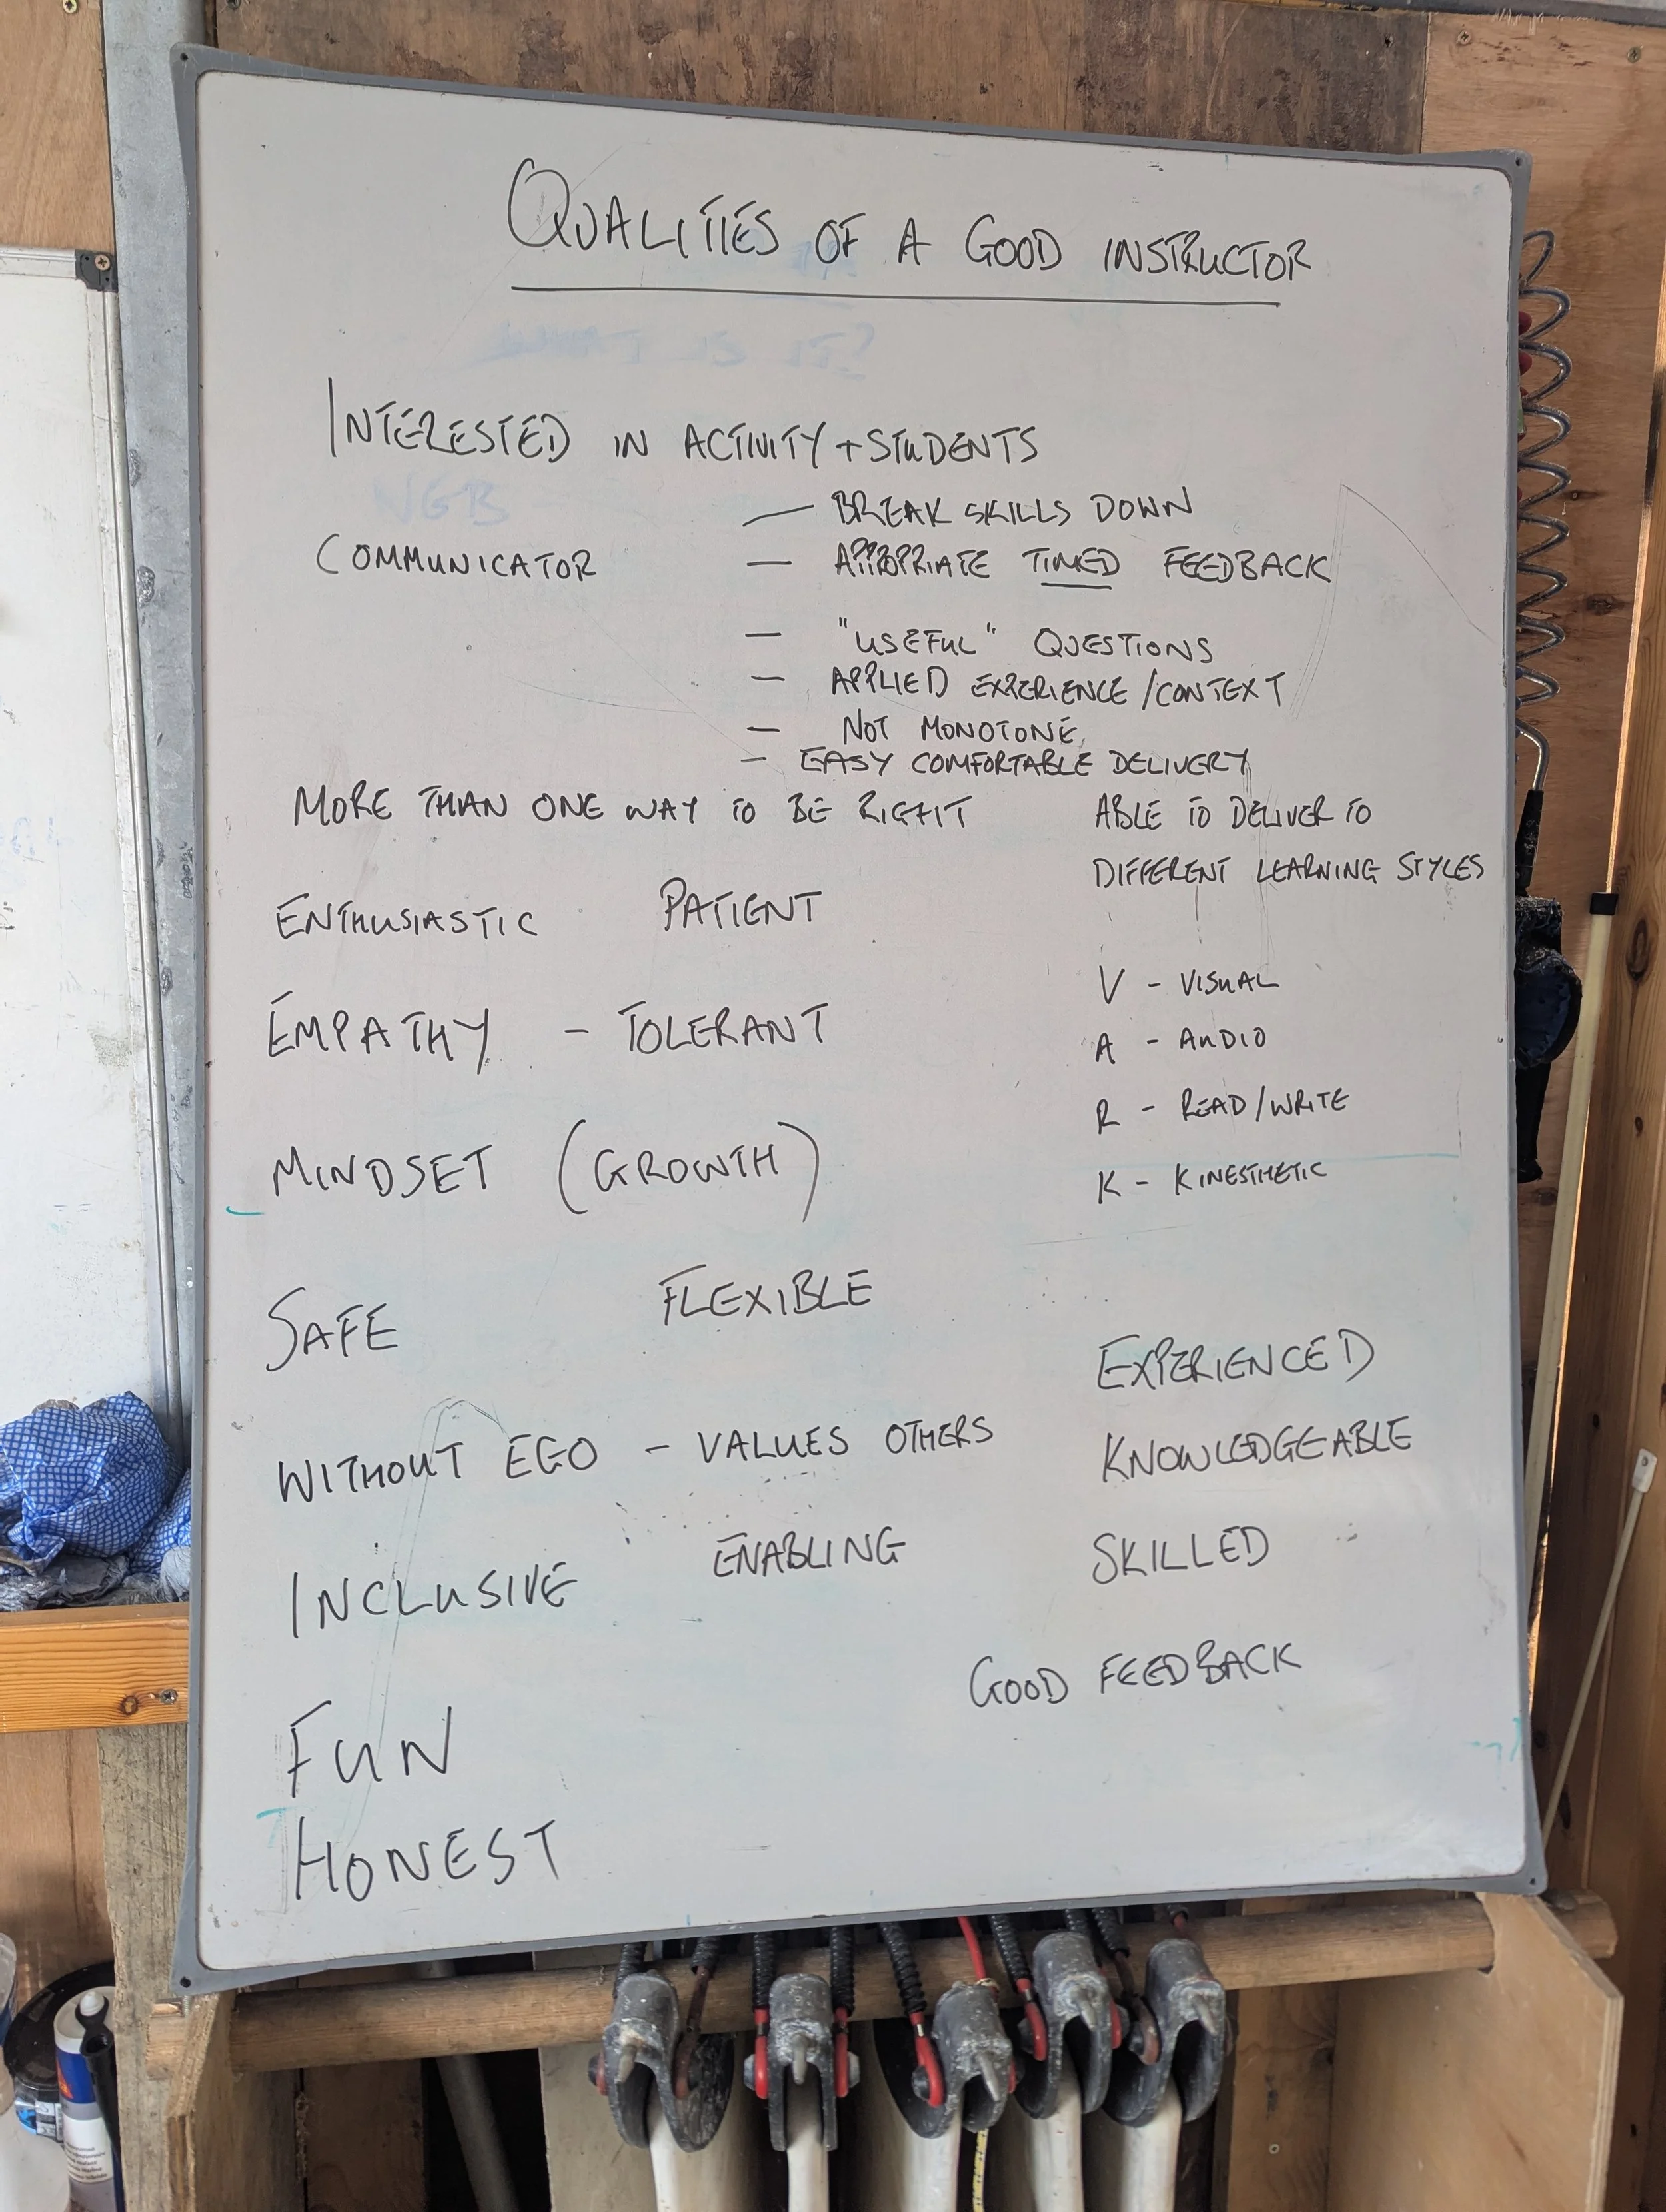 QUALITIES OF A GOOD INSTRUCTOR
WHAT IS IT?
INTERESTED IN ACTIVITY + STUDENTS
NGB
COMMUNICATOR
— BREAK SKILLS DOWN
— APPROPRIATE TIMED FEEDBACK
— "USEFUL" QUESTIONS
— APPLIED EXPERIENCE / CONTEXT
— NOT MONOTONE
— EASY COMFORTABLE DELIVERY
MORE THAN ONE WAY TO BE RIGHT
ABLE TO DELIVER TO
DIFFERENT LEARNING STYLES
V - VISUAL
A - AUDIO
R - READ/WRITE
K - KINESTHETIC
ENTHUSIASTIC PATIENT
EMPATHY - TOLERANT
MINDSET (GROWTH)
SAFE FLEXIBLE
WITHOUT EGO - VALUES OTHERS
INCLUSIVE ENABLING
EXPERIENCED
KNOWLEDGEABLE
SKILLED
GOOD FEEDBACK
FUN
HONEST